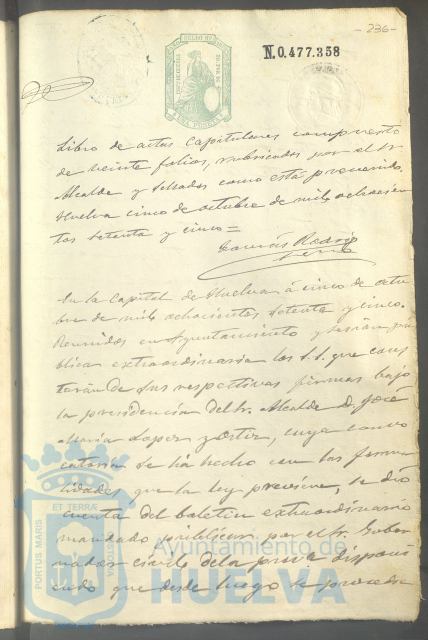 -236-
N.0.477.358
Libro de actas Capitulares compuesto
de veinte folios, rubricados por el Sr
Alcalde y Sellados como está prevenido.
Huelva cinco de octubre de mil ochocien
tos setenta y cinco=
En la Capital de Huelva á cinco de octu
bre de mil ochocientos setenta y cinco.
Reunidos en Ayuntamiento y sesion pú
blica extraordinaria los S.S. que cons
tarán de sus respectivas firmas bajo
la presidencia del Sr. Alcalde D. José
Maria Lopez cuya convo
catoria se ha hecho con las forma
lidades que la ley previene, se dió
cuenta del boletin extraordinario
mandado publicar por el Sr. Gober
nador civil de la prov.a disponi
endo que desde luego se proceda
ET TERRÆ
PORTUS MARIS
CUSTODIA
Ayuntamiento de
HUELVA